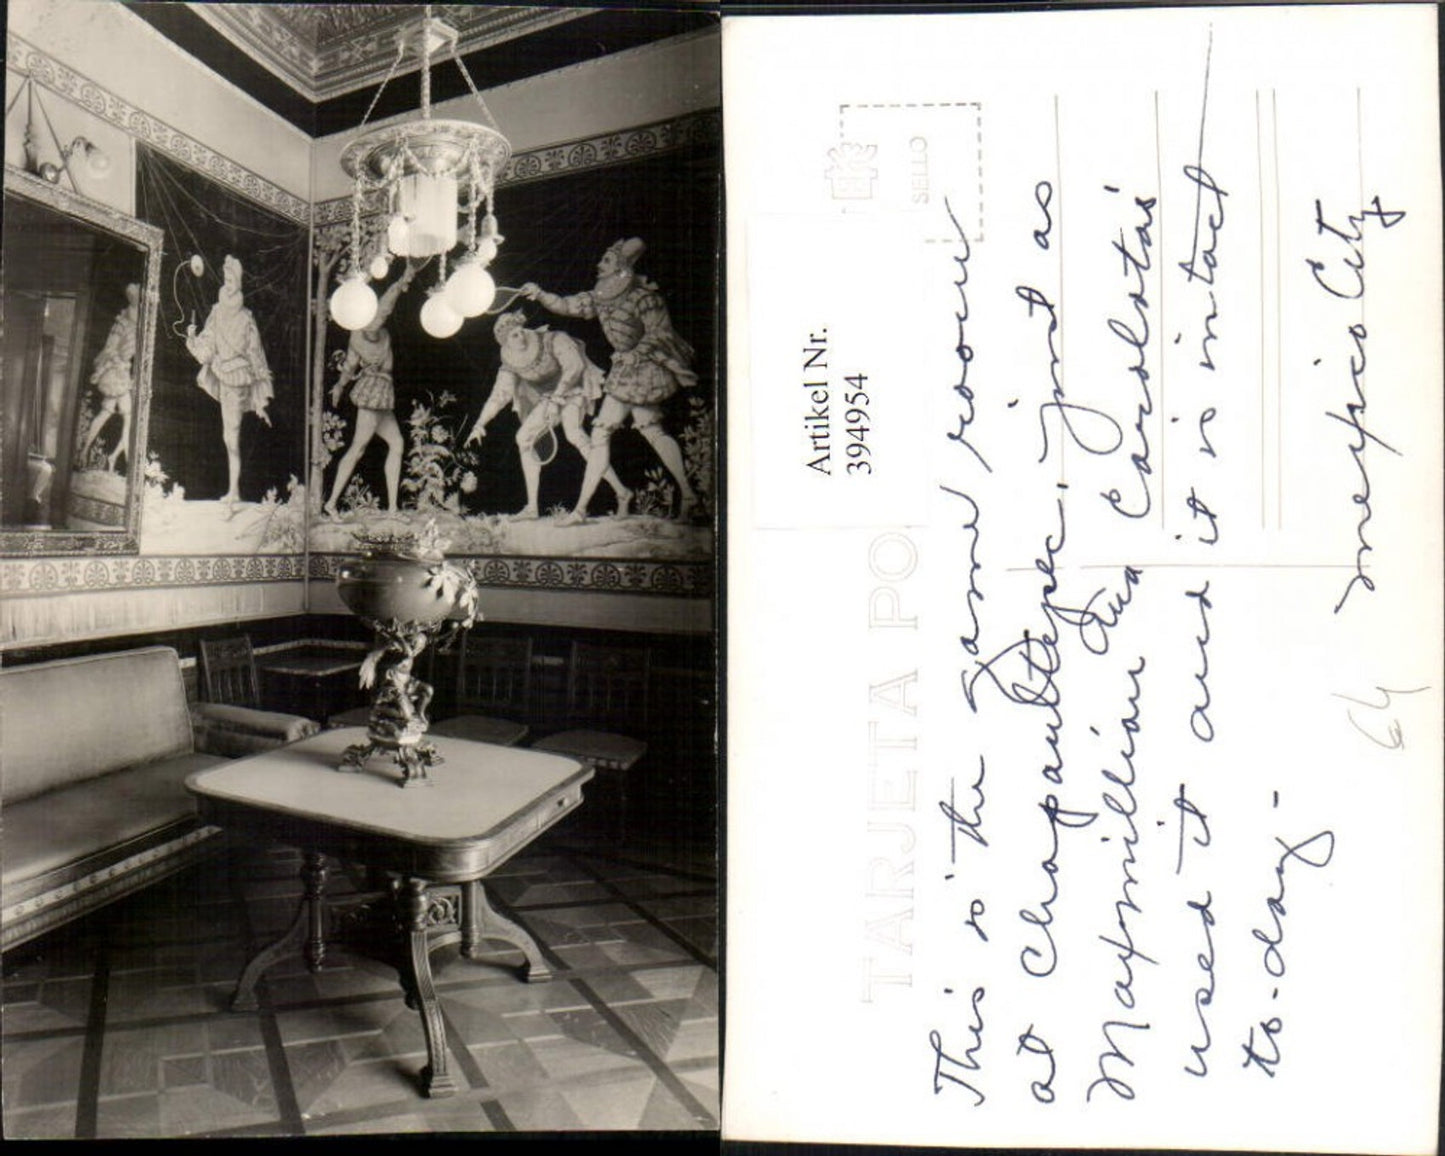 SELLO
Artikel Nr.
394954
TARJETA PO
This is the same room
at Chapaultepec, just as
Maxmillian and Carolotas'
used it and it is intact
to-day -
Mexico City